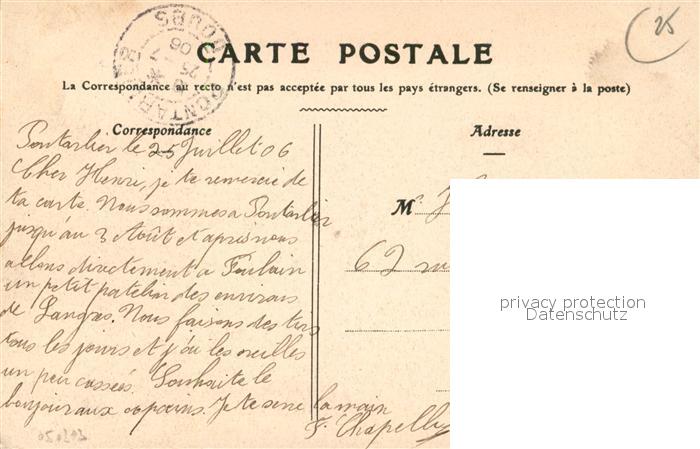 CARTE POSTALE
La Correspondance au recto n'est pas acceptée par tous les pays étrangers. (Se renseigner à la poste)
Correspondance
Pontarlier le 25 Juillet 06
Cher Henri, je te remercie de
ta carte. Nous sommes a Pontarlier
jusqu'au 3 Août et après nous
allons directement a
un petit patelin des environs
de Langres. Nous faisons des tirs
tous les jours et j'ai les oreilles
un peu cassées. Souhaite le
bonjour aux copains. Je te serre la main
F. Chapelle
Adresse
M
62
25
PONTARLIER
DOUBS
25
06
privacy protection
Datenschutz